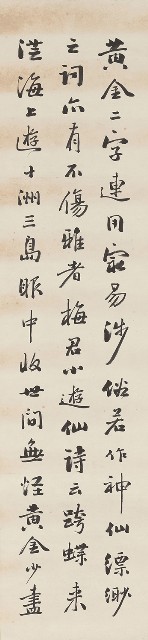 黃金二字連用最易涉俗若作神仙縹緲
之詞亦有不傷雅者梅君小遊仙詩云跨蝶来
從海上遊十洲三島眼中收世間無怪黃金少盡